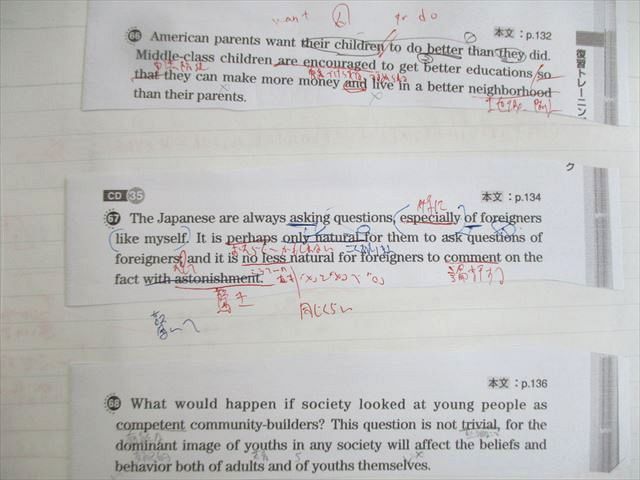 want to do
本文：p.132
66 American parents want their children to do better than they did.
Middle-class children are encouraged to get better educations so
that they can make more money and live in a better neighborhood
than their parents.
復習トレーニン
ク
CD 35
本文：p.134
特に
67 The Japanese are always asking questions, especially of foreigners
like myself. It is perhaps only natural for them to ask questions of
foreigners, and it is no less natural for foreigners to comment on the
fact with astonishment.
論評する
驚き
同じくらい
驚いて
本文：p.136
68 What would happen if society looked at young people as
competent community-builders? This question is not trivial, for the
dominant image of youths in any society will affect the beliefs and
behavior both of adults and of youths themselves.